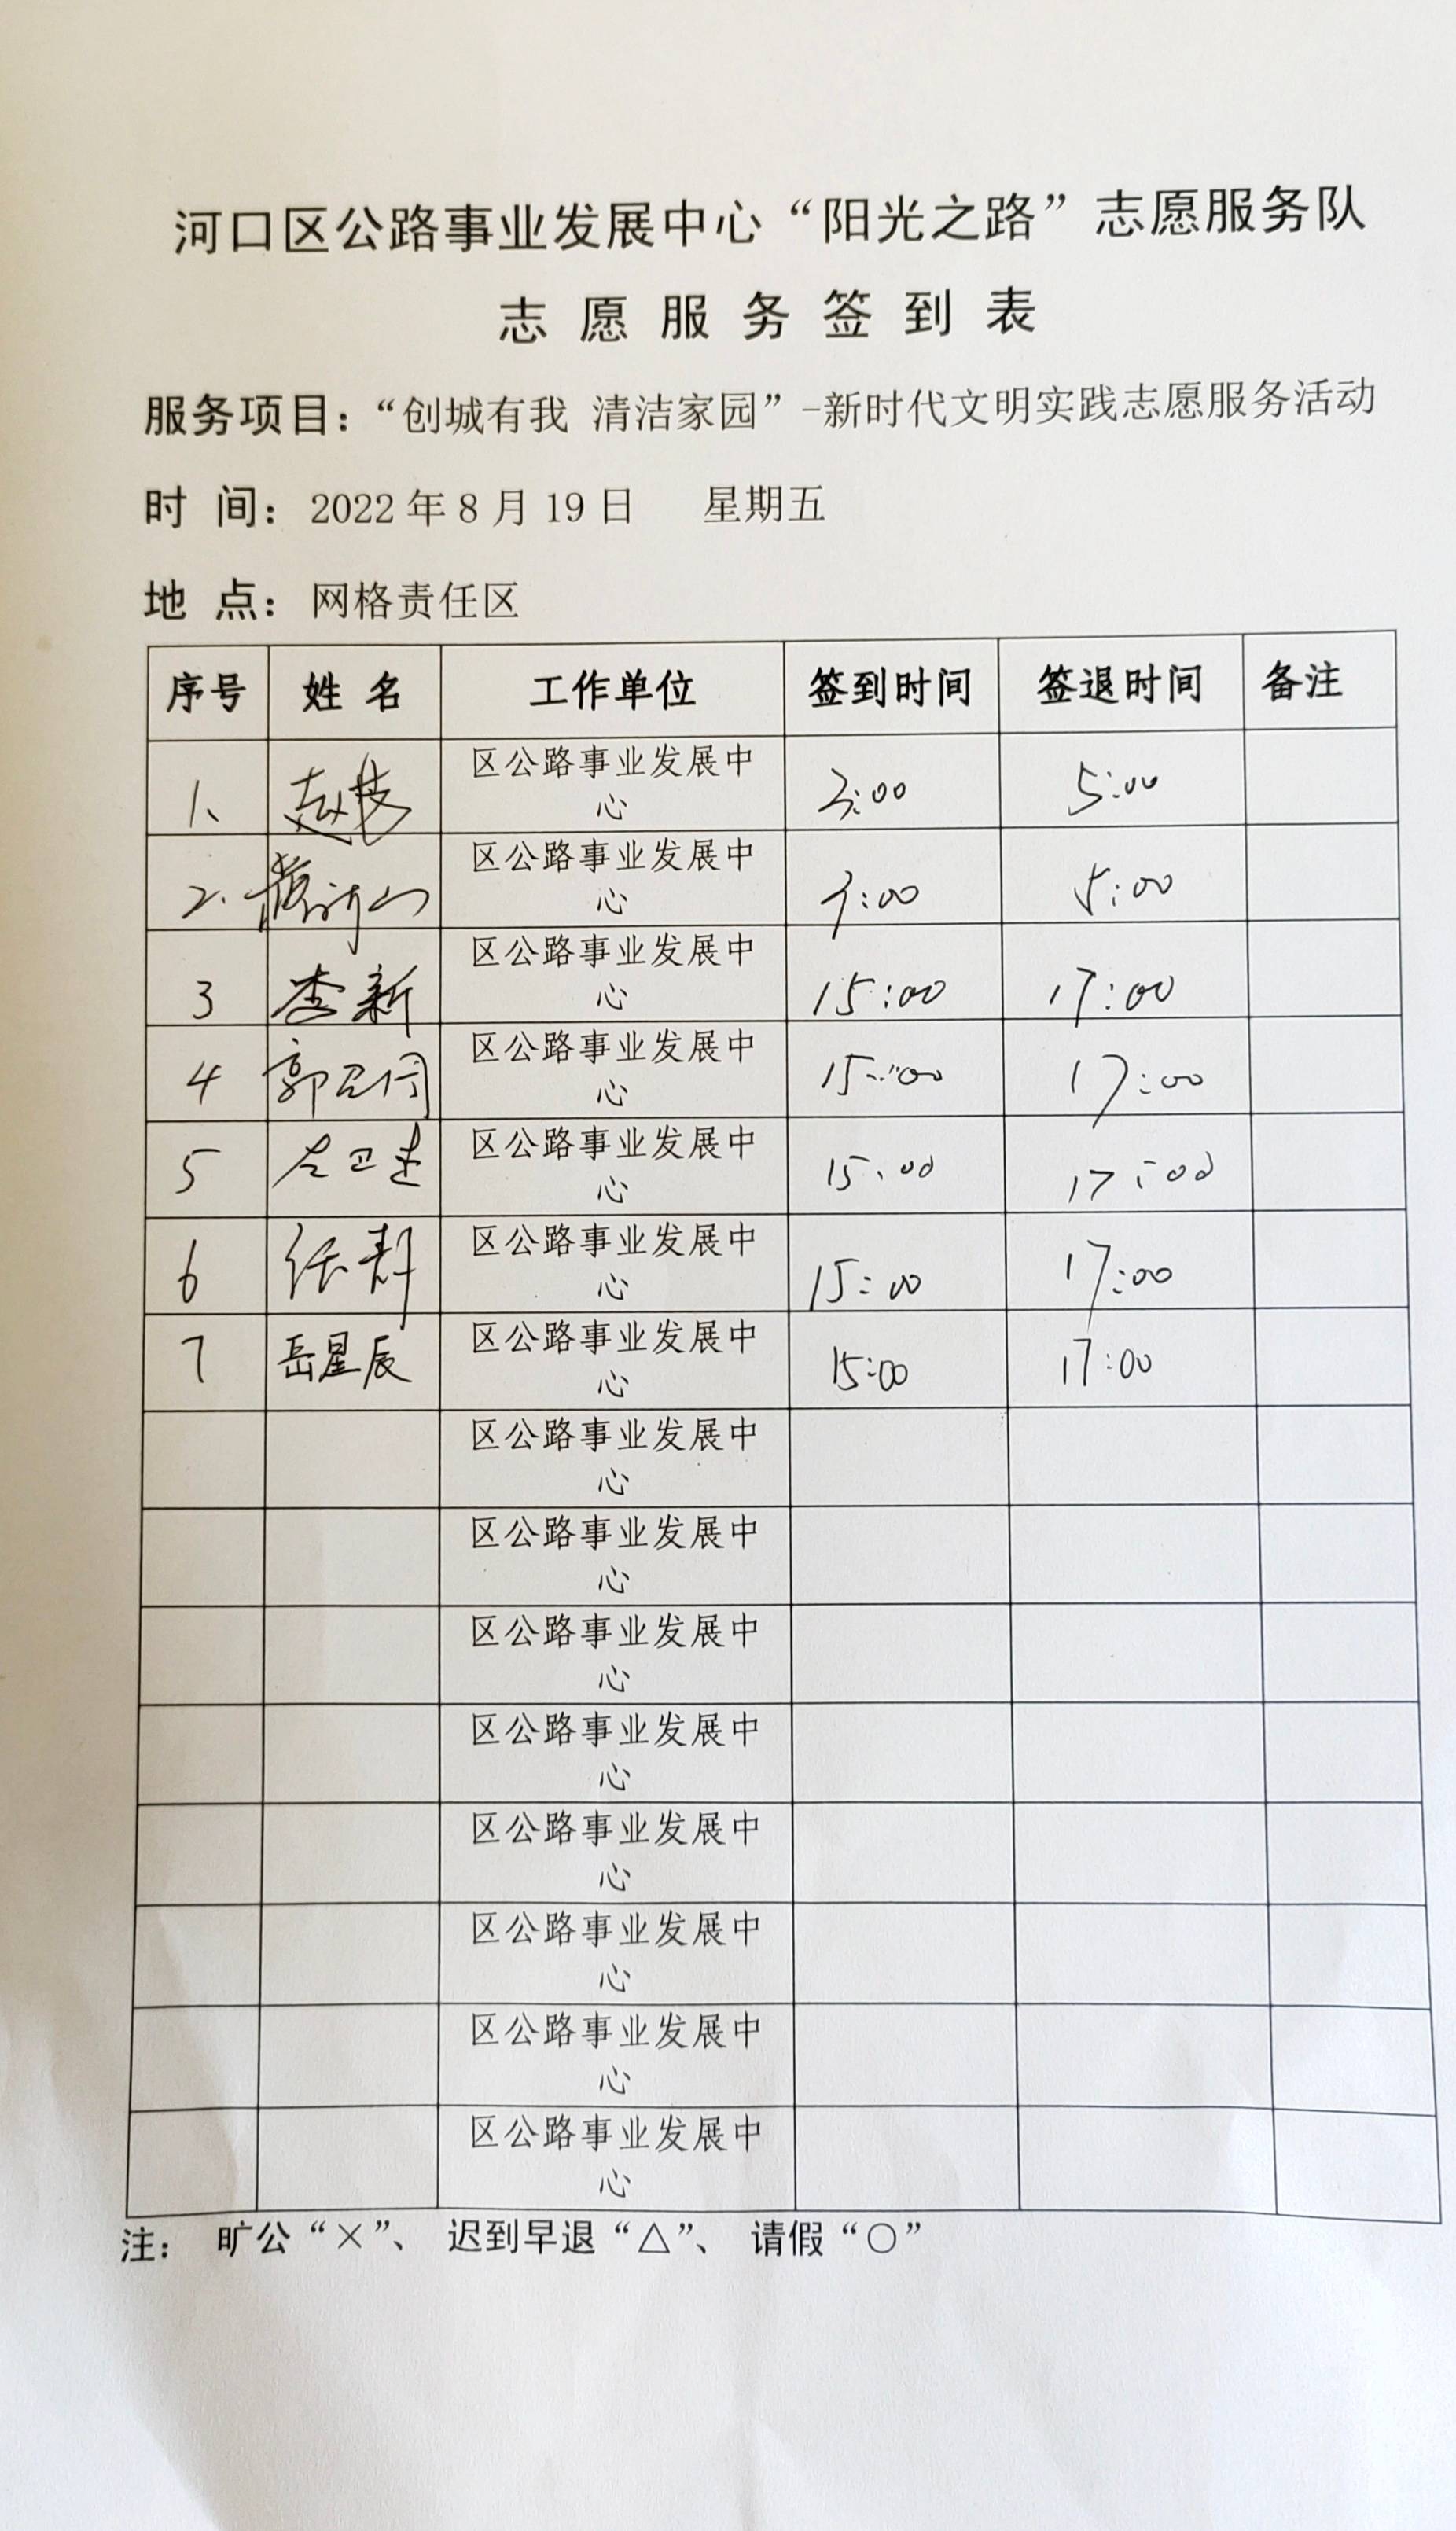 河口区公路事业发展中心“阳光之路”志愿服务队
志愿服务签到表
服务项目：“创城有我 清洁家园”-新时代文明实践志愿服务活动
时 间：2022年8月19日 星期五
地 点：网格责任区
序号 姓 名 工作单位 签到时间 签退时间 备注
1、 区公路事业发展中心 3:00 5:00
2. 区公路事业发展中心 3:00 5:00
3 李新 区公路事业发展中心 15:00 17:00
4 郭卫国 区公路事业发展中心 15:00 17:00
5 区公路事业发展中心 15:00 17:00
6 任静 区公路事业发展中心 15:00 17:00
7 岳星辰 区公路事业发展中心 15:00 17:00
区公路事业发展中心
区公路事业发展中心
区公路事业发展中心
区公路事业发展中心
区公路事业发展中心
区公路事业发展中心
区公路事业发展中心
区公路事业发展中心
注： 旷公“×”、 迟到早退“△”、 请假“○”